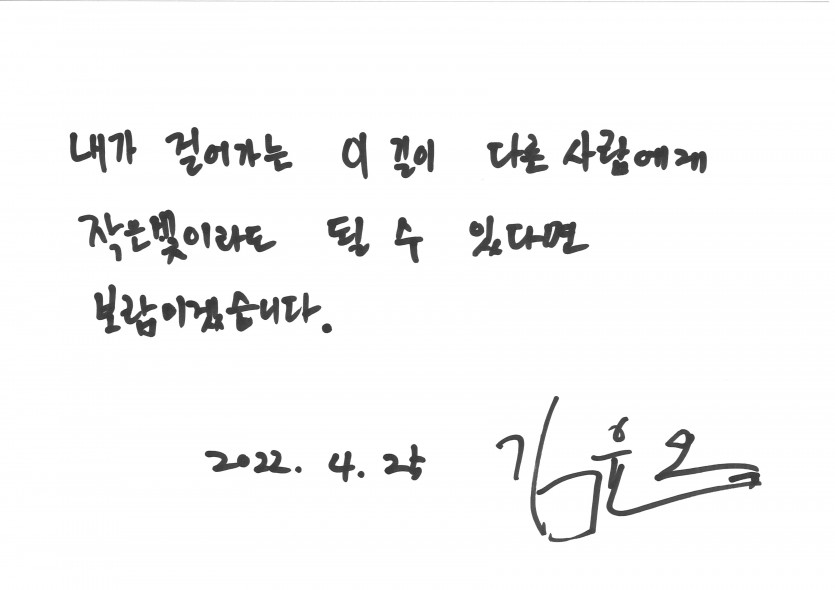 내가 걸어가는 이 길이 다른 사람에게
작은빛이라도 될 수 있다면
보람이겠습니다.
2022. 4. 25